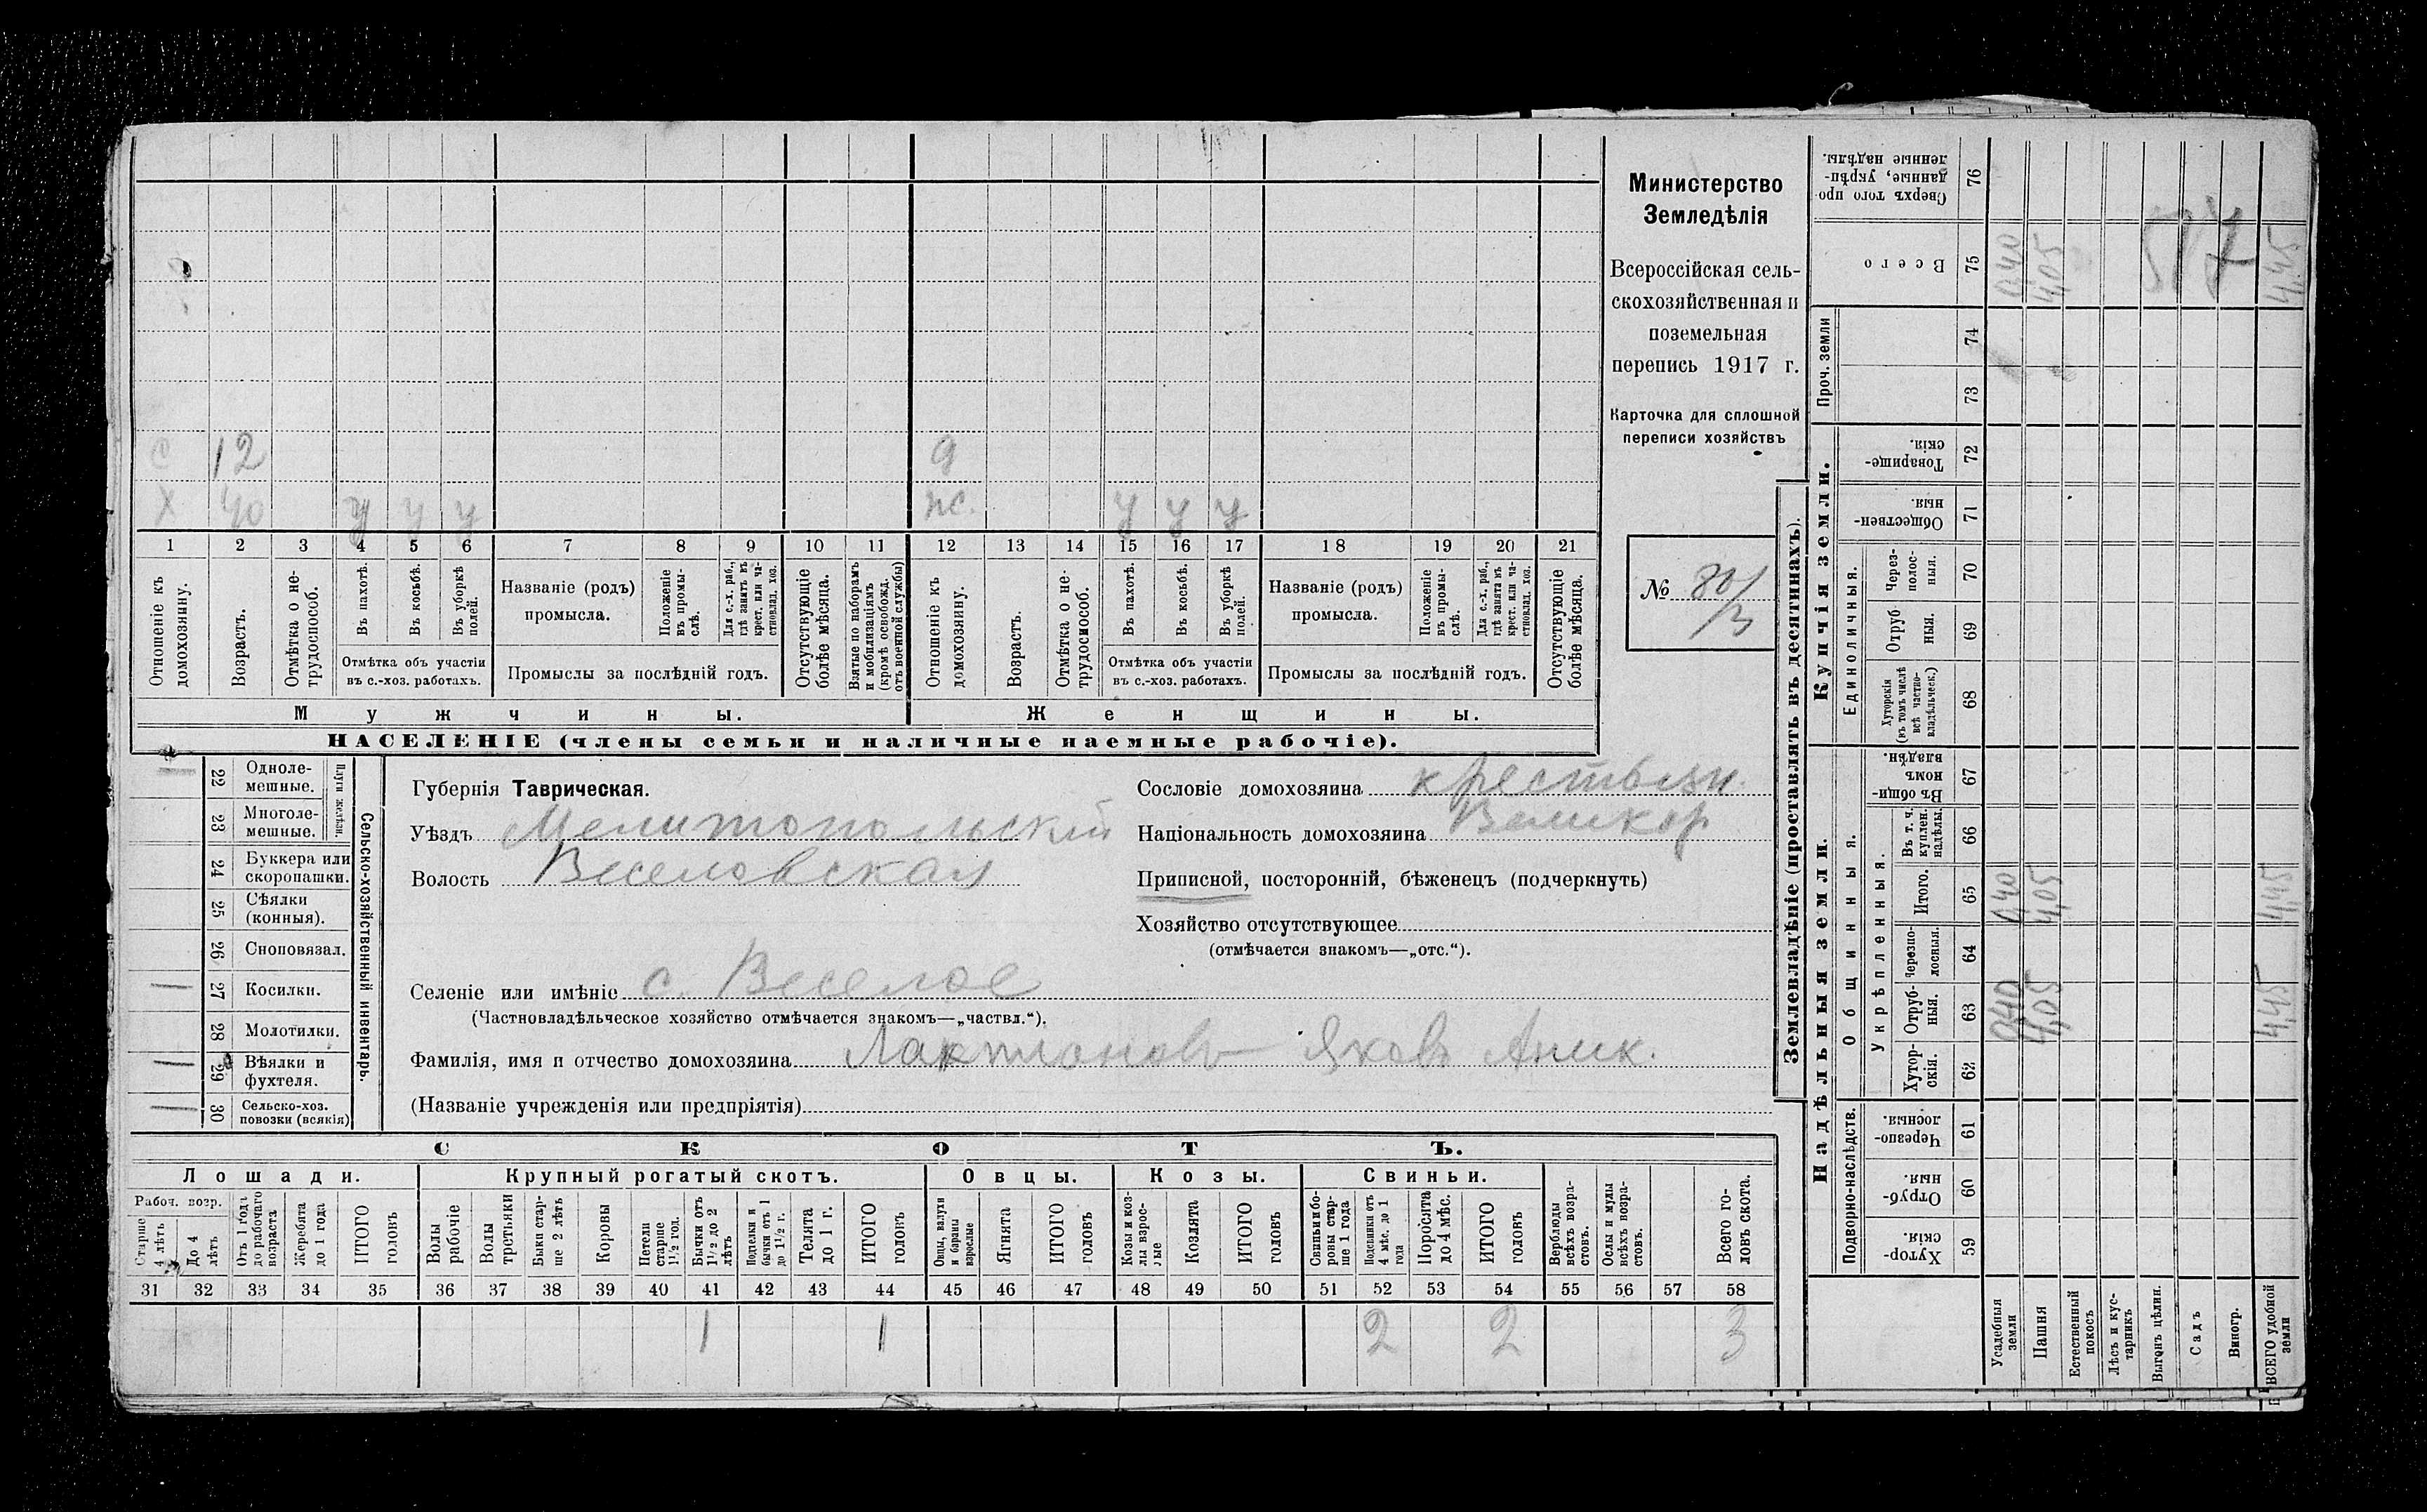 с 12 д
х 40 у у у ж. у у у
1 2 3 4 5 6 7 8 9 10 11 12 13 14 15 16 17 18 19 20 21
Отношеніе къ домохозяину.
Возрастъ.
Отмѣтка о не-
трудоспособ.
Въ пахотѣ.
Въ косьбѣ.
Въ уборкѣ
полей.
Отмѣтка объ участіи
въ с.-хоз. работахъ.
Названіе (родъ)
промысла.
Положеніе
въ промы-
слѣ.
Для с.-х. раб.,
гдѣ занятъ въ
крест. или ча-
стновлад. хоз.
Промыслы за послѣдній годъ.
Отсутствующіе
болѣе мѣсяца.
Взятые по наборамъ
и мобилизаціямъ
(кромѣ освобожд.
отъ военной службы)
Отношеніе къ
домохозяину.
Возрастъ.
Отмѣтка о не-
трудоспособ.
Въ пахотѣ.
Въ косьбѣ.
Въ уборкѣ
полей.
Отмѣтка объ участіи
въ с.-хоз. работахъ.
Названіе (родъ)
промысла.
Положеніе
въ промы-
слѣ.
Для с.-х. раб.,
гдѣ занята въ
крест. или ча-
стновлад. хоз.
Промыслы за послѣдній годъ.
Отсутствующіе
болѣе мѣсяца.
Мужчины.
Женщины.
НАСЕЛЕНІЕ (члены семьи и наличные наемные рабочіе).
Министерство
Земледѣлія
Всероссійская сель-
скохозяйственная и
поземельная
перепись 1917 г.
Карточка для сплошной
переписи хозяйствъ
№ 801/3
Плуги желѣзн.
22 Одноле-
мешные.
23 Многоле-
мешные.
24 Буккера или
скоропашки.
25 Сѣялки
(конныя).
26 Сноповязал.
27 Косилки.
28 Молотилки.
29 Вѣялки и
фухтеля.
30 Сельско-хоз.
повозки (всякія)
Сельско-хозяйственный инвентарь.
Губернія Таврическая.
Уѣздъ Мелитопольскій
Волость Веселовская
Сословіе домохозяина крестьян.
Національность домохозяина Великор
Приписной, посторонній, бѣженецъ (подчеркнуть)
Хозяйство отсутствующее
(отмѣчается знакомъ—„отс.“).
Селеніе или имѣніе с. Веселое
(Частновладѣльческое хозяйство отмѣчается знакомъ—„частвл.“).
Фамилія, имя и отчество домохозяина Лактіоновъ Яковъ Аник.
(Названіе учрежденія или предпріятія)
СКОТЪ.
Лошади. Крупный рогатый скотъ. Овцы. Козы. Свиньи.
Рабоч. возр.
Старше
4 лѣтъ
До 4
лѣтъ
Отъ 1 года
до рабочаго
возраста
Жеребята
до 1 года
ИТОГО
головъ
Волы
рабочіе
Волы
третьяки
Быки стар-
ше 2 лѣтъ
Коровы
Нетели
старше
1½ год.
Бычки отъ
1½ до 2
лѣтъ
Подтелки и
бычки отъ 1
до 1½ г.
Телята
до 1 г.
ИТОГО
головъ
Овцы, валухи
и бараны
взрослые
Ягнята
ИТОГО
головъ
Козы и коз-
лы взрос-
лые
Козлята
ИТОГО
головъ
Свиньи и бо-
ровы стар-
ше 1 года
Подсвинки отъ
4 мѣс. до 1
года
Поросята
до 4 мѣс.
ИТОГО
головъ
Верблюды
всѣхъ возра-
стовъ.
Ослы и мулы
всѣхъ возра-
стовъ.
Всего го-
ловъ скота.
31 32 33 34 35 36 37 38 39 40 41 42 43 44 45 46 47 48 49 50 51 52 53 54 55 56 57 58
1 1 2 2 3
Землевладѣніе (проставлять въ десятинахъ).
Надѣльныя земли.
Купчія земли.
Проч. земли
Подворно-наслѣдств.
Общинныя.
Укрѣпленныя.
Единоличныя.
Сверхъ того про-
данные, укрѣп-
ленные надѣлы.
76
Всего
75 0,40 4,05 517 4,45
74
73
Товарище-
скія.
72
Обществен-
ныя.
71
Через-
полос-
ныя.
70
Отруб
ныя.
69
Хуторскія
(въ томъ числѣ
всѣ частно-
владѣльческ.)
68
Въ общи-
номъ
владѣн.
67
Въ т. ч.
куплен.
надѣлы.
66
Итого.
65 0,40 4,05 4,45
Черезпо-
лосныя.
64
Отруб-
ныя.
63 0,40 4,05 4,45
Хутор-
скія.
62
Черезпо-
лосныя.
61
Отруб-
ныя.
60
Хутор-
скія.
59
Усадебныя
земли
Пашня
Естественный
покосъ
Лѣсъ и кус-
тарникъ
Выгонъ цѣлин.
Садъ
Виногр.
ВСЕГО удобной
земли